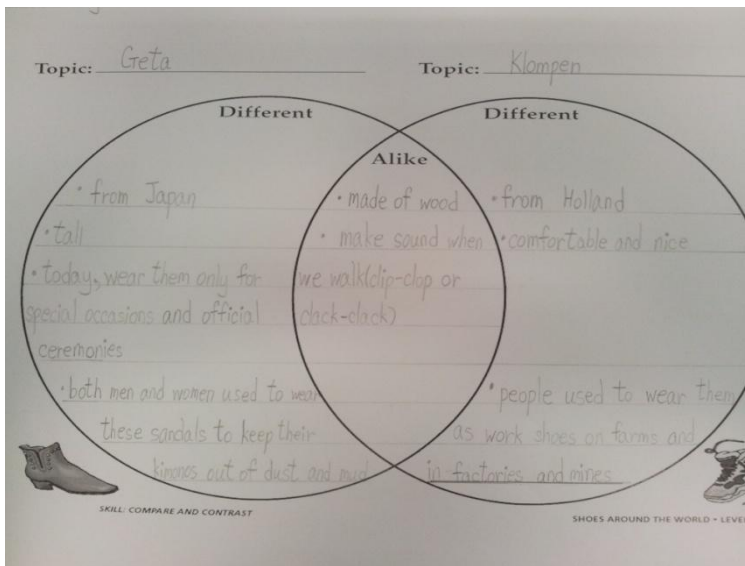 Topic: Geta
Topic: Klompen
Different
Different
Alike
• from Japan
• tall
• today, wear them only for
special occasions and official
ceremonies
• both men and women used to wear
these sandals to keep their
kimonos out of dust and mud
• made of wood
• make sound when
we walk(clip-clop or
clack-clack)
• from Holland
• comfortable and nice
• people used to wear them
as work shoes on farms and
in factories and mines
SKILL: COMPARE AND CONTRAST
SHOES AROUND THE WORLD • LEVEL